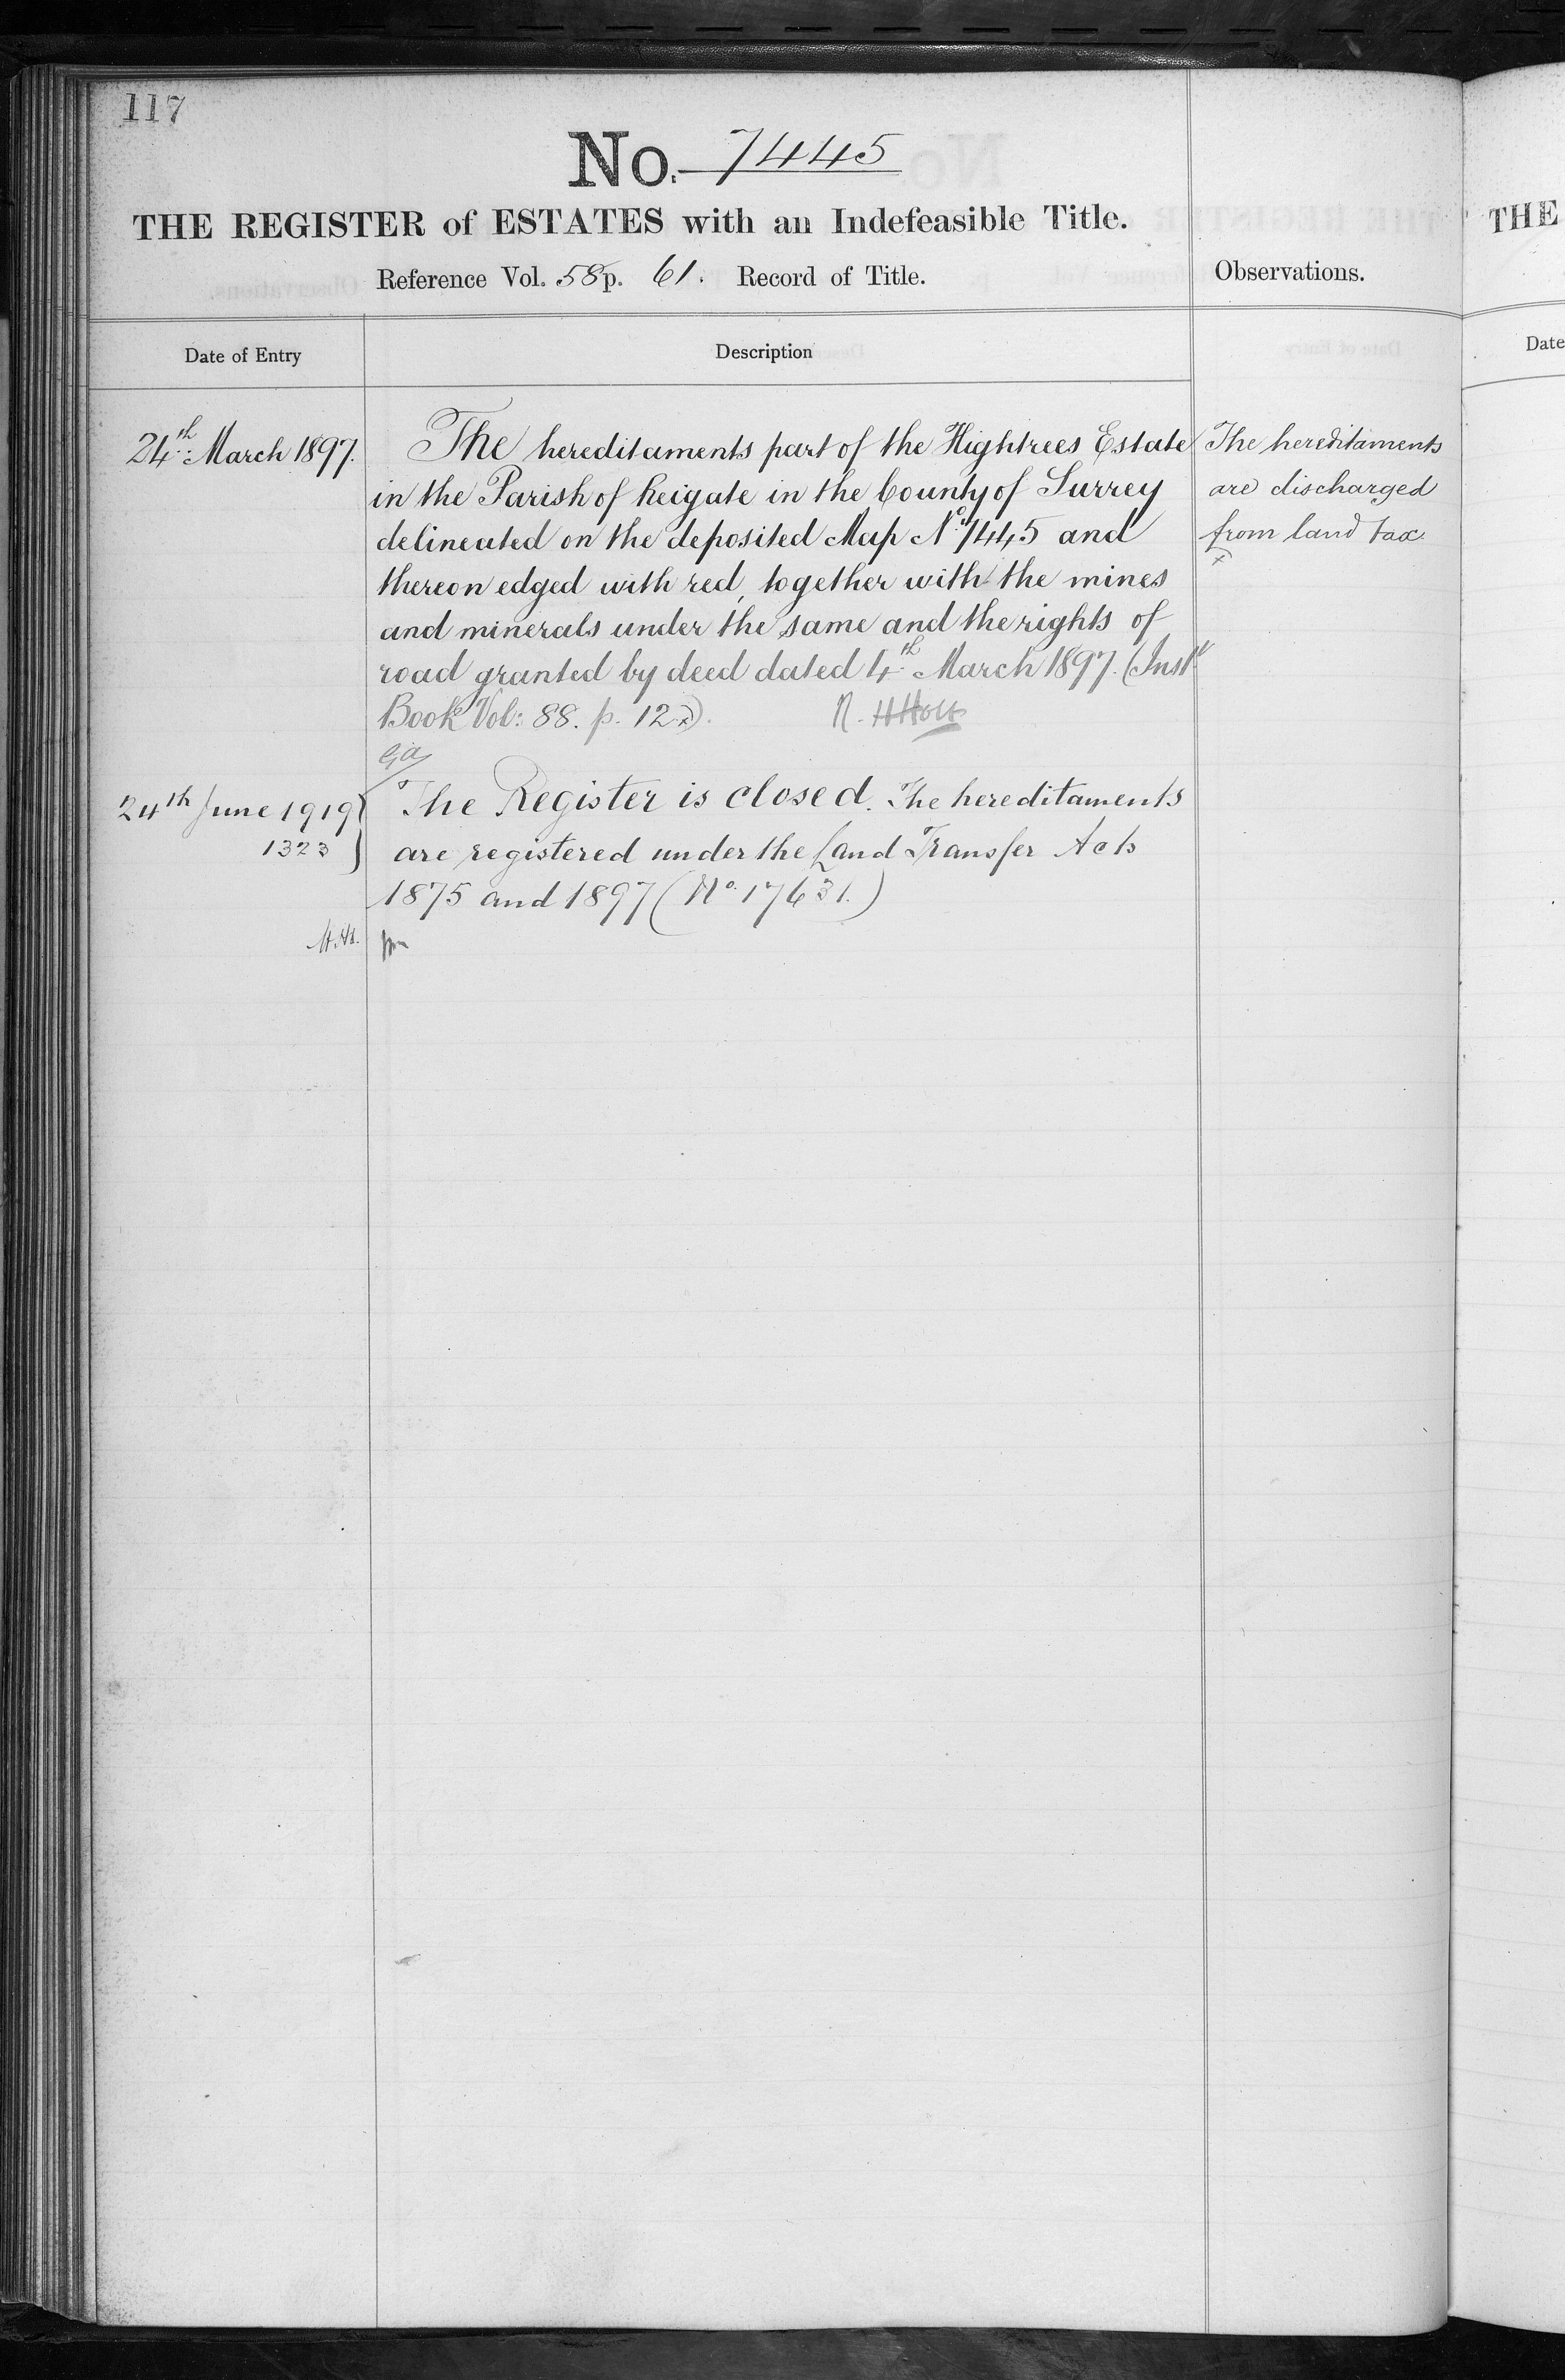 117
No. 7445
THE REGISTER of ESTATES with an Indefeasible Title.
Reference Vol. 58 p. 61. Record of Title.
Observations.
Date of Entry
Description
24th March 1897.
The hereditaments part of the Hightrees Estate
in the Parish of Reigate in the County of Surrey
delineated on the deposited Map No. 7445 and
thereon edged with red, together with the mines
and minerals under the same and the rights of
road granted by deed dated 4th March 1897. (Inst
Book Vol: 88. p. 12).
The hereditaments
are discharged
from land tax.
24th June 1919
1323
The Register is closed. The hereditaments
are registered under the Land Transfer Acts
1875 and 1897 (No. 17631.)
THE
Date